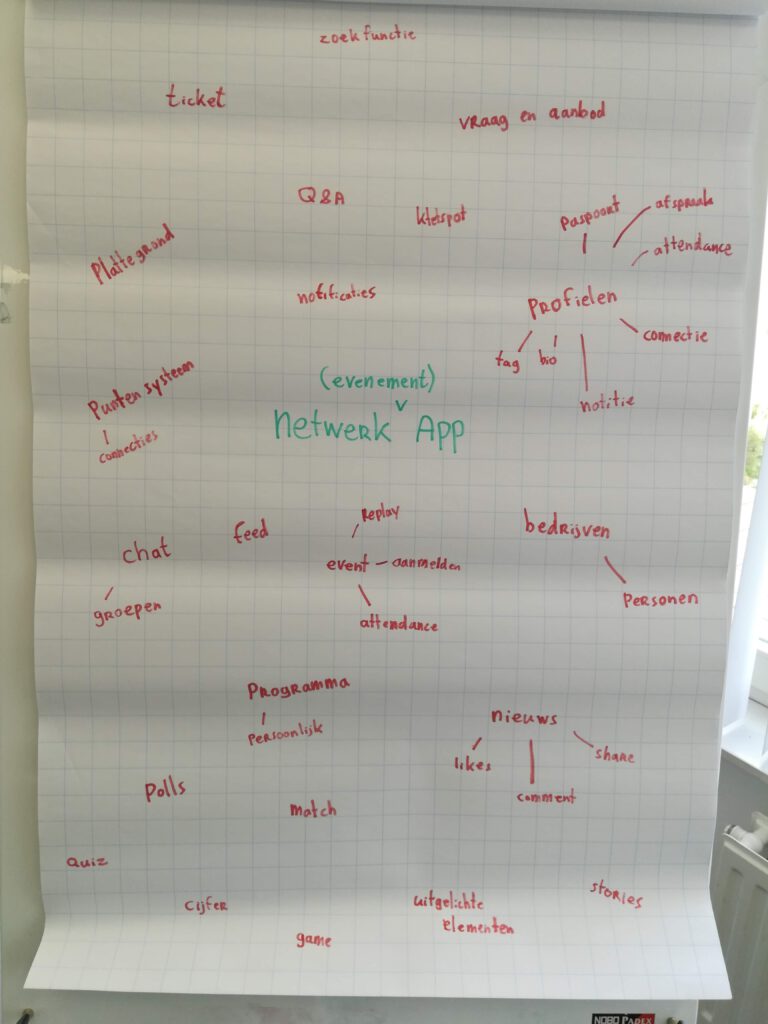 zoekfunctie
ticket
vraag en aanbod
Q&A
kletspot
Paspoort
afspraak
attendance
Plattegrond
notificaties
Profielen
connectie
tag
bio
notitie
(evenement)
Netwerk App
Punten systeem
connecties
chat
groepen
feed
Replay
event - aanmelden
attendance
bedrijven
Personen
Programma
Persoonlijk
nieuws
likes
comment
share
Polls
match
Quiz
cijfer
game
uitgelichte
elementen
stories
NOBO PADEX